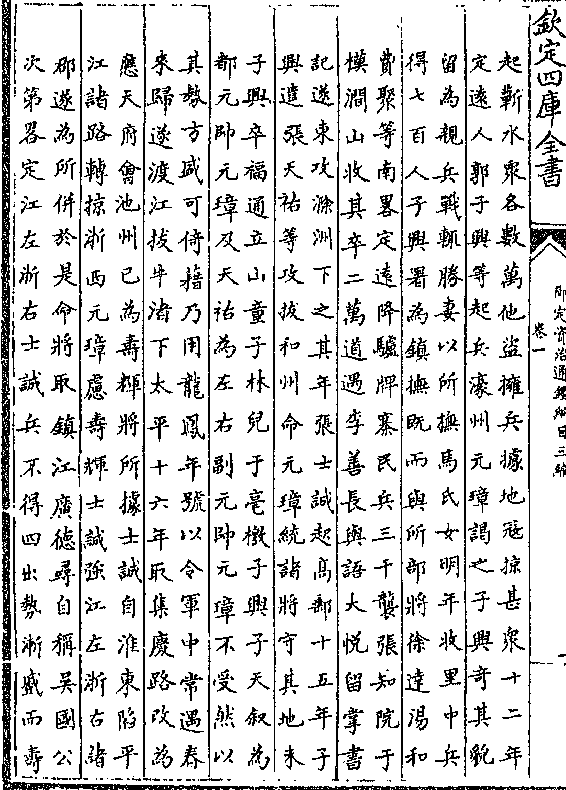 欽定四庫全書
御定資治通鑑綱目三編
卷一
起蘄水衆各數萬他盜擁兵據地寇掠甚衆十二年
定遠人郭子興等起兵濠州元璋謁之子興奇其貌
留為親兵戰輒勝妻以所撫馬氏女明年收里中兵
得七百人子興署為鎮撫既而與所部將徐達湯和
費聚等南畧定遠降驢牌寨民兵三千襲張知院于
横澗山收其卒二萬道遇李善長與語大悦留掌書
記遂東攻滁洲下之其年張士誠起高郵十五年子
興遣張天祐等攻拔和州命元璋統諸將守其地未
子興卒福通立山童子林兒于亳檄子興子天叙為
都元帥元璋及天祐為左右副元帥元璋不受然以
其勢方盛可倚藉乃用龍鳳年號以令軍中常遇春
來歸遂渡江拔牛渚下太平十六年取集慶路改為
應天府會池州已為壽輝將所據士誠自淮東陷平
江諸路轉掠浙西元璋慮壽輝士誠强江左浙右諸
郡遂為所併於是命將取鎮江廣德尋自稱吳國公
次第畧定江左浙右士誠兵不得四出勢漸蹙而壽